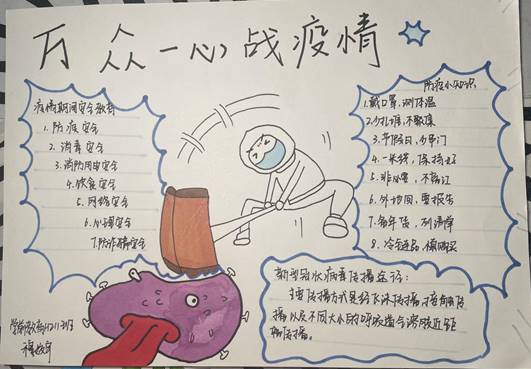 万众一心战疫情
疫情期间安全教育
1.防疫安全
2.消毒安全
3.消防用电安全
4.饮食安全
5.网络安全
6.心理安全
7.防诈骗安全
防疫小知识
1.戴口罩,测体温
2.少扎堆,不聚集
3.节假日,少串门
4.一米线,保持好
5.非必要,不离江
6.外地回,要报告
7.备年货,列清单
8.冷冻品,慎购买
新型冠状病毒传播途径:
主要传播方式是经飞沫传播,接触传
播以及不同大小的呼吸道气溶胶近距
离传播。